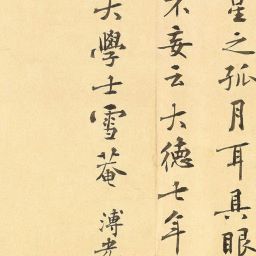 星之孤月耳具眼
不妄云大德七年
大學士雪菴溥光